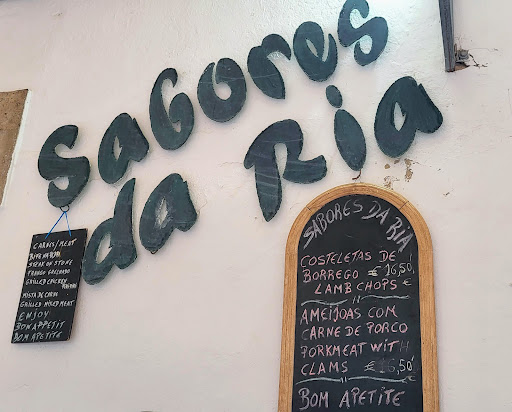 Sabores
da Ria
CARNES/MEAT
BIFE NA PEDRA
STEAK ON STONE
FRANGO GRELHADO
GRILLED CHICKEN
MISTA DE CARNE
GRILLED MIXED MEAT
ENJOY
BON APPETIT
BOM APETITE
SABORES DA RIA
COSTELETAS DE
BORREGO € 16,50
LAMB CHOPS €
AMEIJOAS COM
CARNE DE PORCO
PORKMEAT WITH
CLAMS € 16,50
BOM APETITE